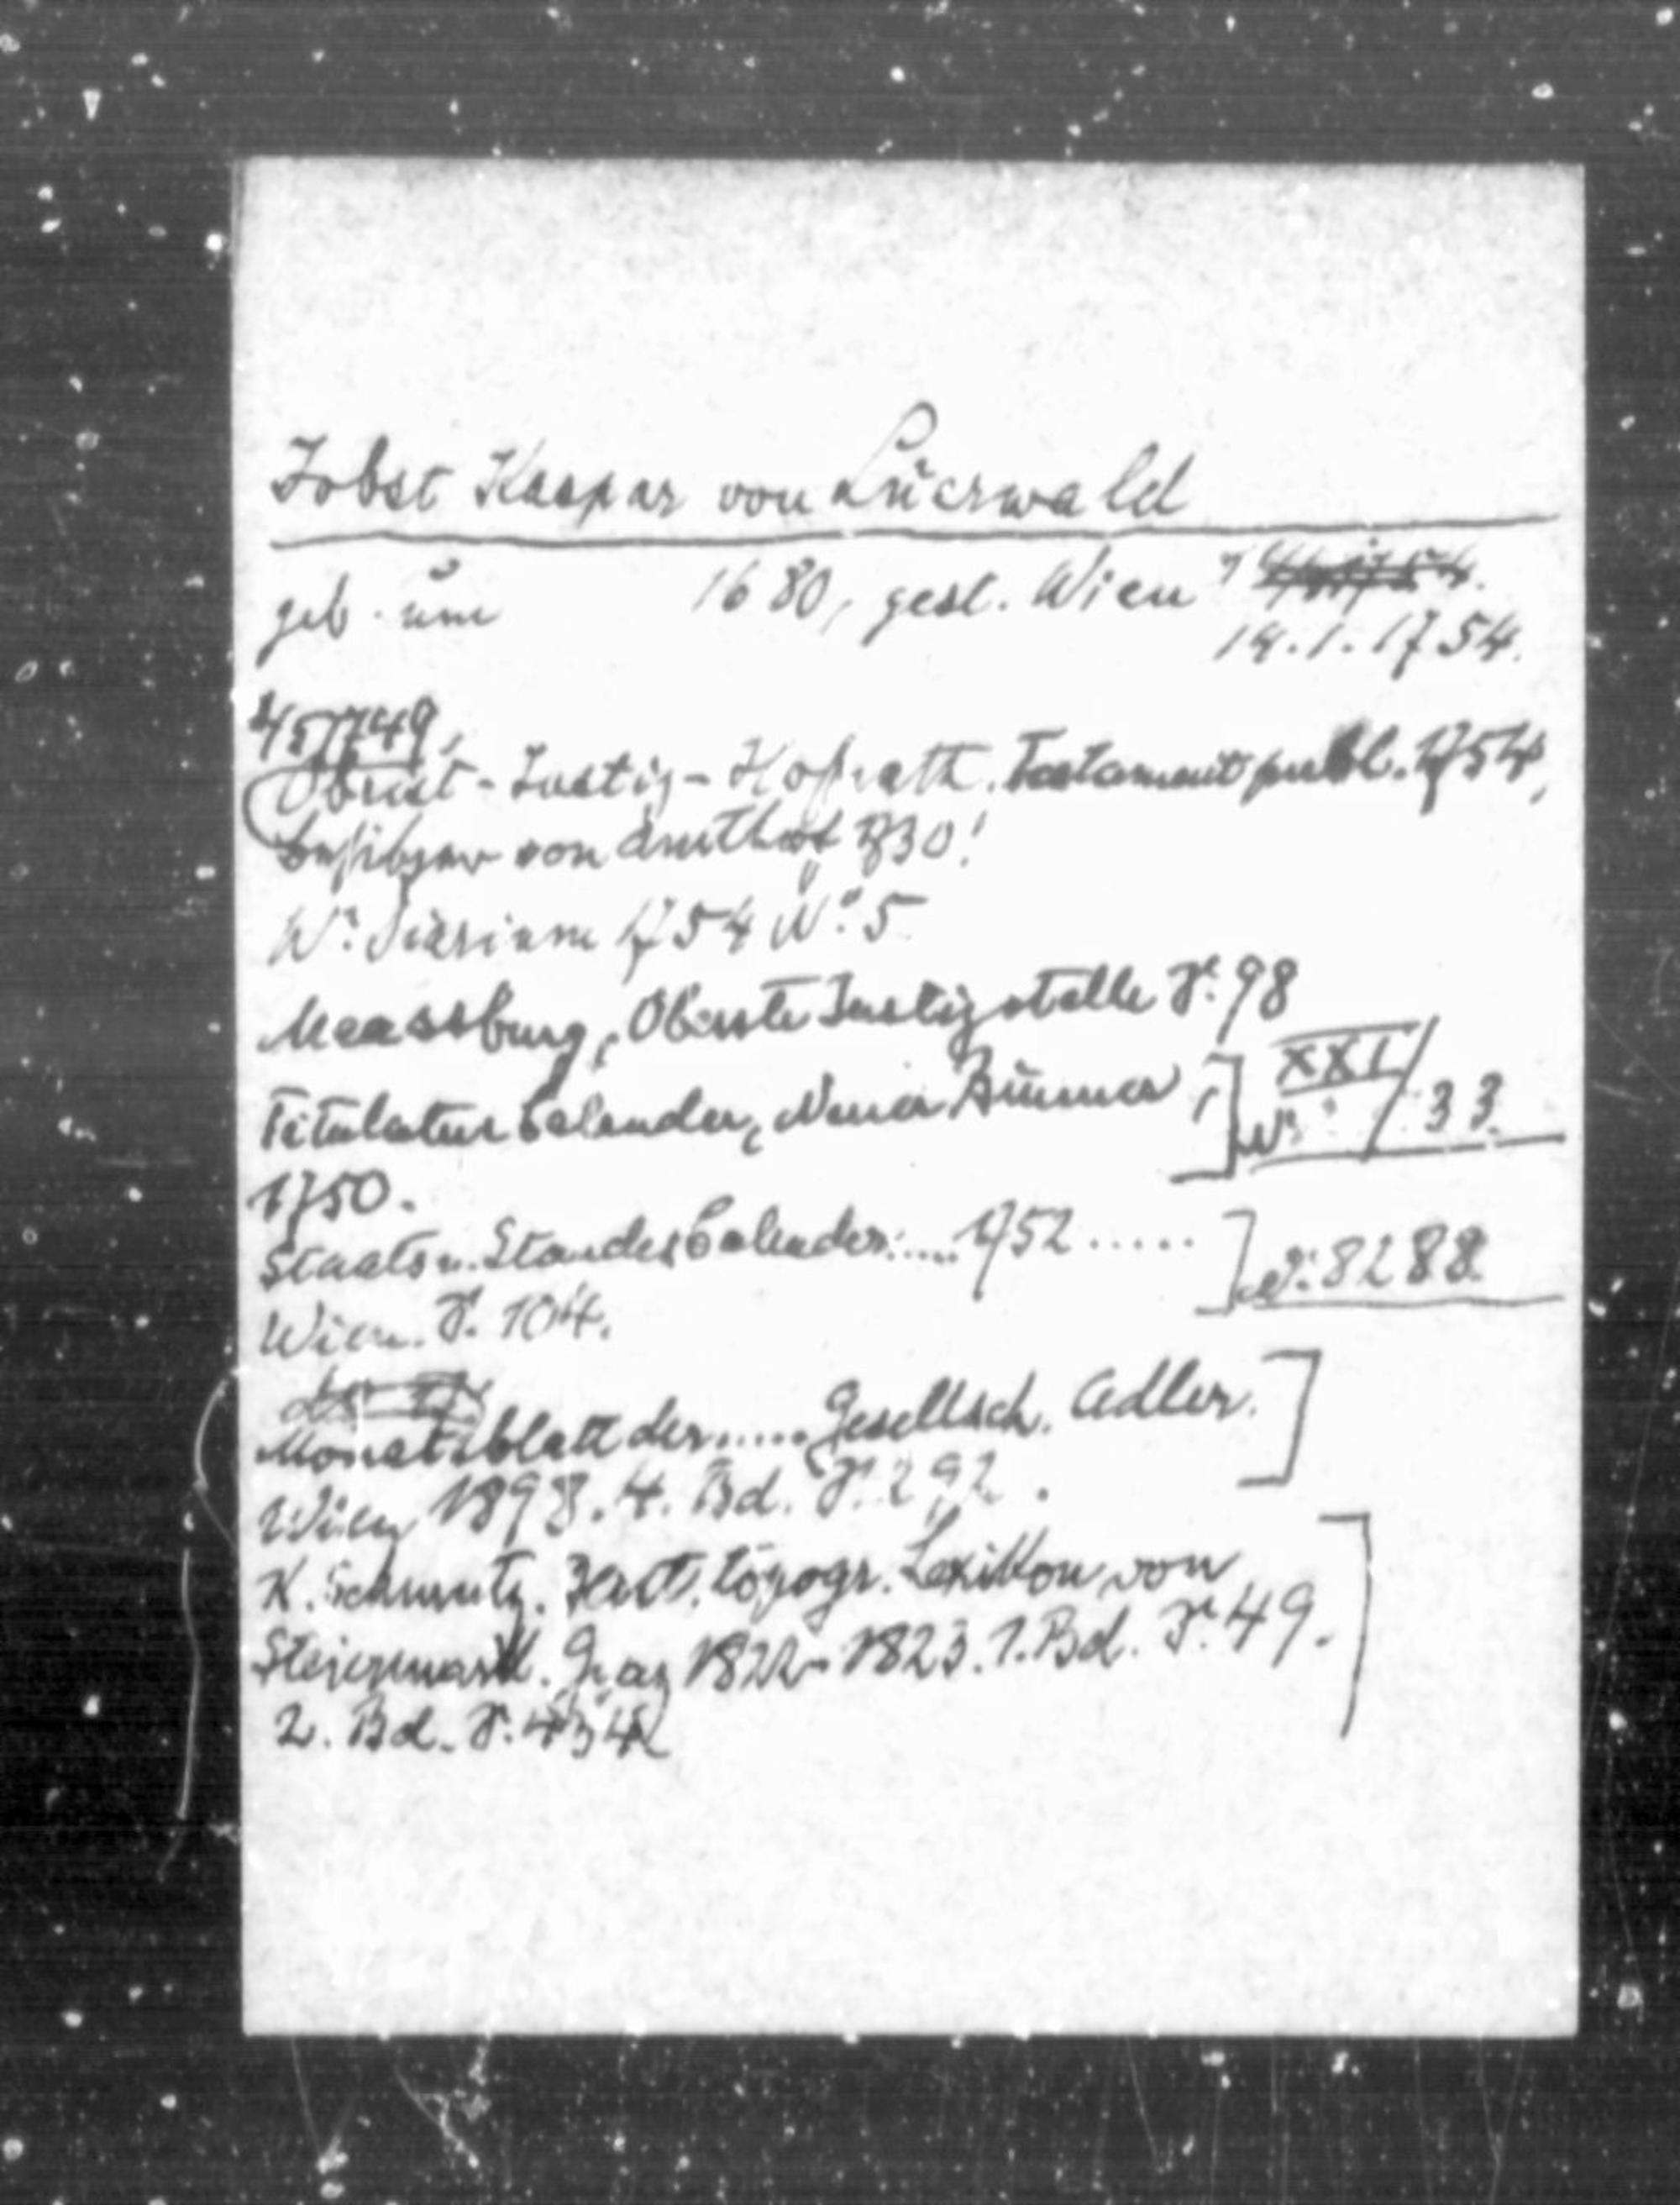 Jobst Kaspar von Lüerwald
geb. um 1680, gest. Wien
14.1.1754.
457749,
Obrist-Justig-Hofrath. Testament publ. 1754,
besitzer von Amthof 1730!
W. Diarium 1754 No. 5
Maassburg, Oberste Justizstelle S. 98
Titulaturcalender, Neuer Krummer, ] XXI/
N: 33.
1750.
Staats u. Standescalender: .... 1752 ..... ] N: 8288.
Wien. S. 104.
Monatsblatt der ..... Gesellsch. Adler. ]
Wien 1898. 4. Bd. S. 292.
K. Schmutz. Hist. topogr. Lexikon von
Steiermark. Graz 1822-1823. 1. Bd. S. 49. ]
2. Bd. S.